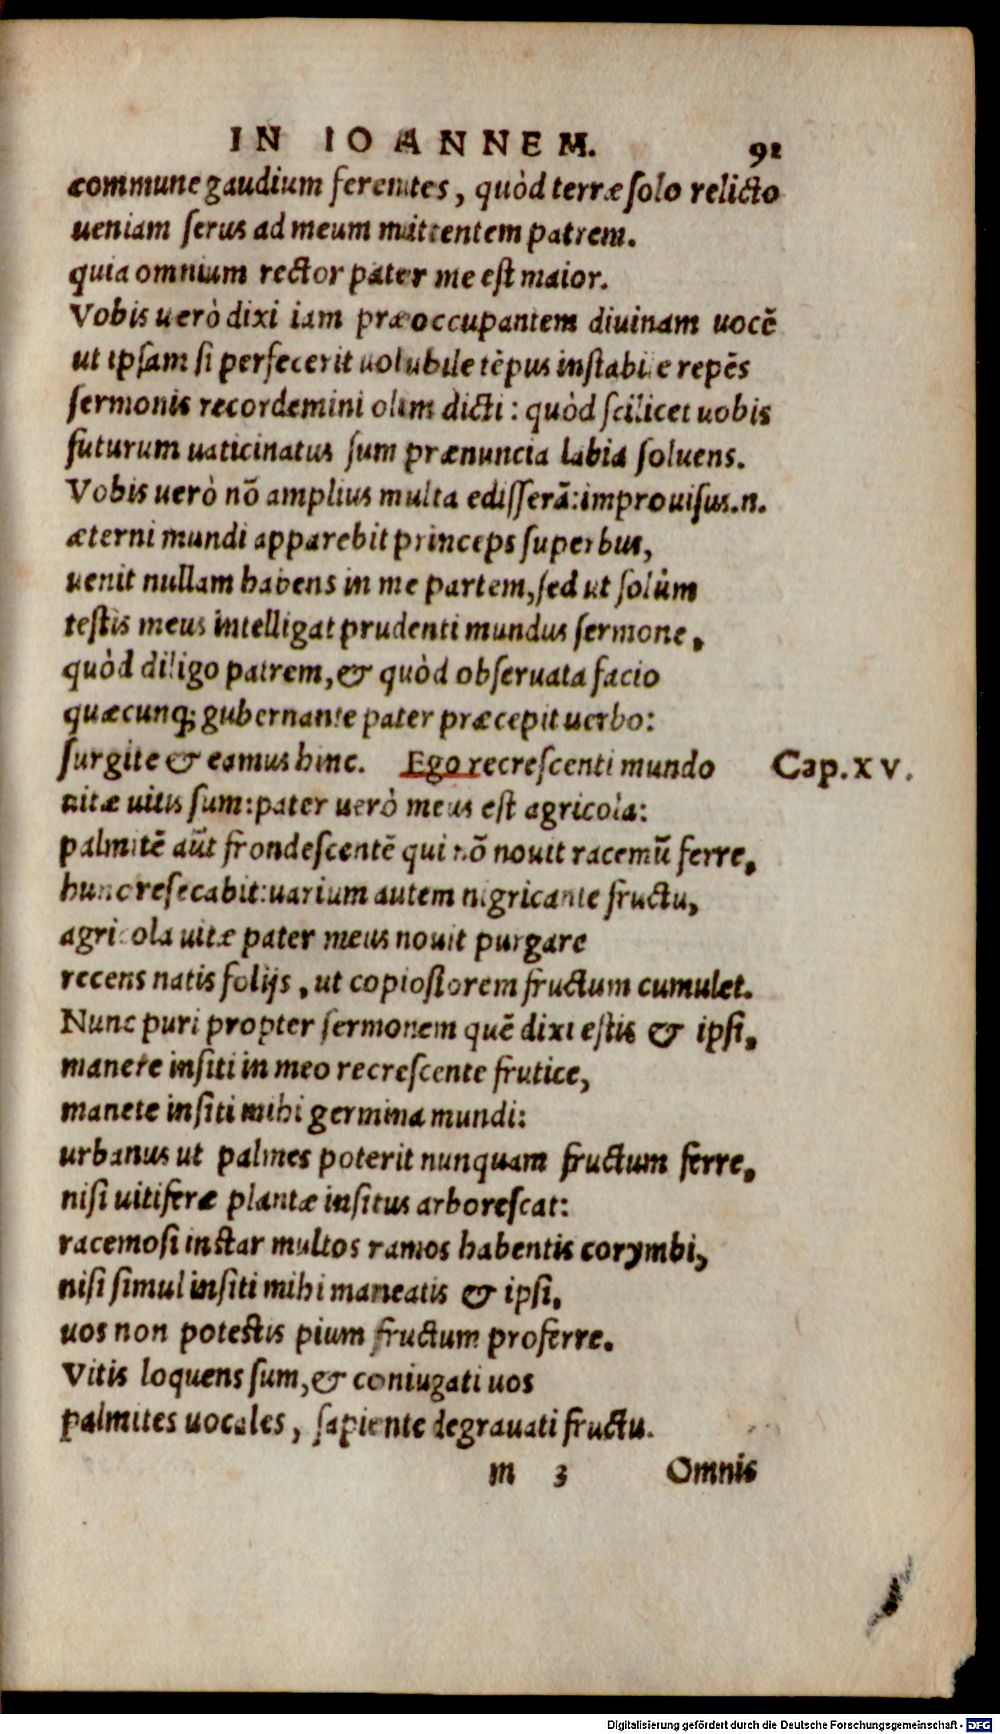 IN IOANNEM. 91
commune gaudium ferentes, quòd terræ solo relicto
ueniam serus ad meum mittentem patrem.
quia omnium rector pater me est maior.
Vobis uerò dixi iam præoccupantem diuinam uocẽ
ut ipsam si perfecerit uolubile tẽpus instabile repẽs
sermonis recordemini olim dicti: quòd scilicet uobis
futurum uaticinatus sum prænuncia labia soluens.
Vobis uerò nõ amplius multa edisserã: improuisus.n.
æterni mundi apparebit princeps superbus,
uenit nullam habens in me partem, sed ut solùm
testis meus intelligat prudenti mundus sermone,
quòd diligo patrem, & quòd obseruata facio
quæcunq; gubernante pater præcepit uerbo:
surgite & eamus hinc. Ego recrescenti mundo Cap.XV.
uitæ uitis sum: pater uerò meus est agricola:
palmitẽ aũt frondescentẽ qui nõ nouit racemũ ferre,
hunc resecabit: uarium autem nigricante fructu,
agricola uitæ pater meus nouit purgare
recens natis folijs, ut copiosiorem fructum cumulet.
Nunc puri propter sermonem quẽ dixi estis & ipsi,
manete insiti in meo recrescente frutice,
manete insiti mihi germina mundi:
urbanus ut palmes poterit nunquam fructum ferre,
nisi uitiferæ plantæ insitus arborescat:
racemosi instar multos ramos habentis corymbi,
nisi simul insiti mihi maneatis & ipsi,
uos non potestis pium fructum proferre.
Vitis loquens sum, & coniugati uos
palmites uocales, sapiente degrauati fructu.
m 3 Omnis
Digitalisierung gefördert durch die Deutsche Forschungsgemeinschaft - DFG